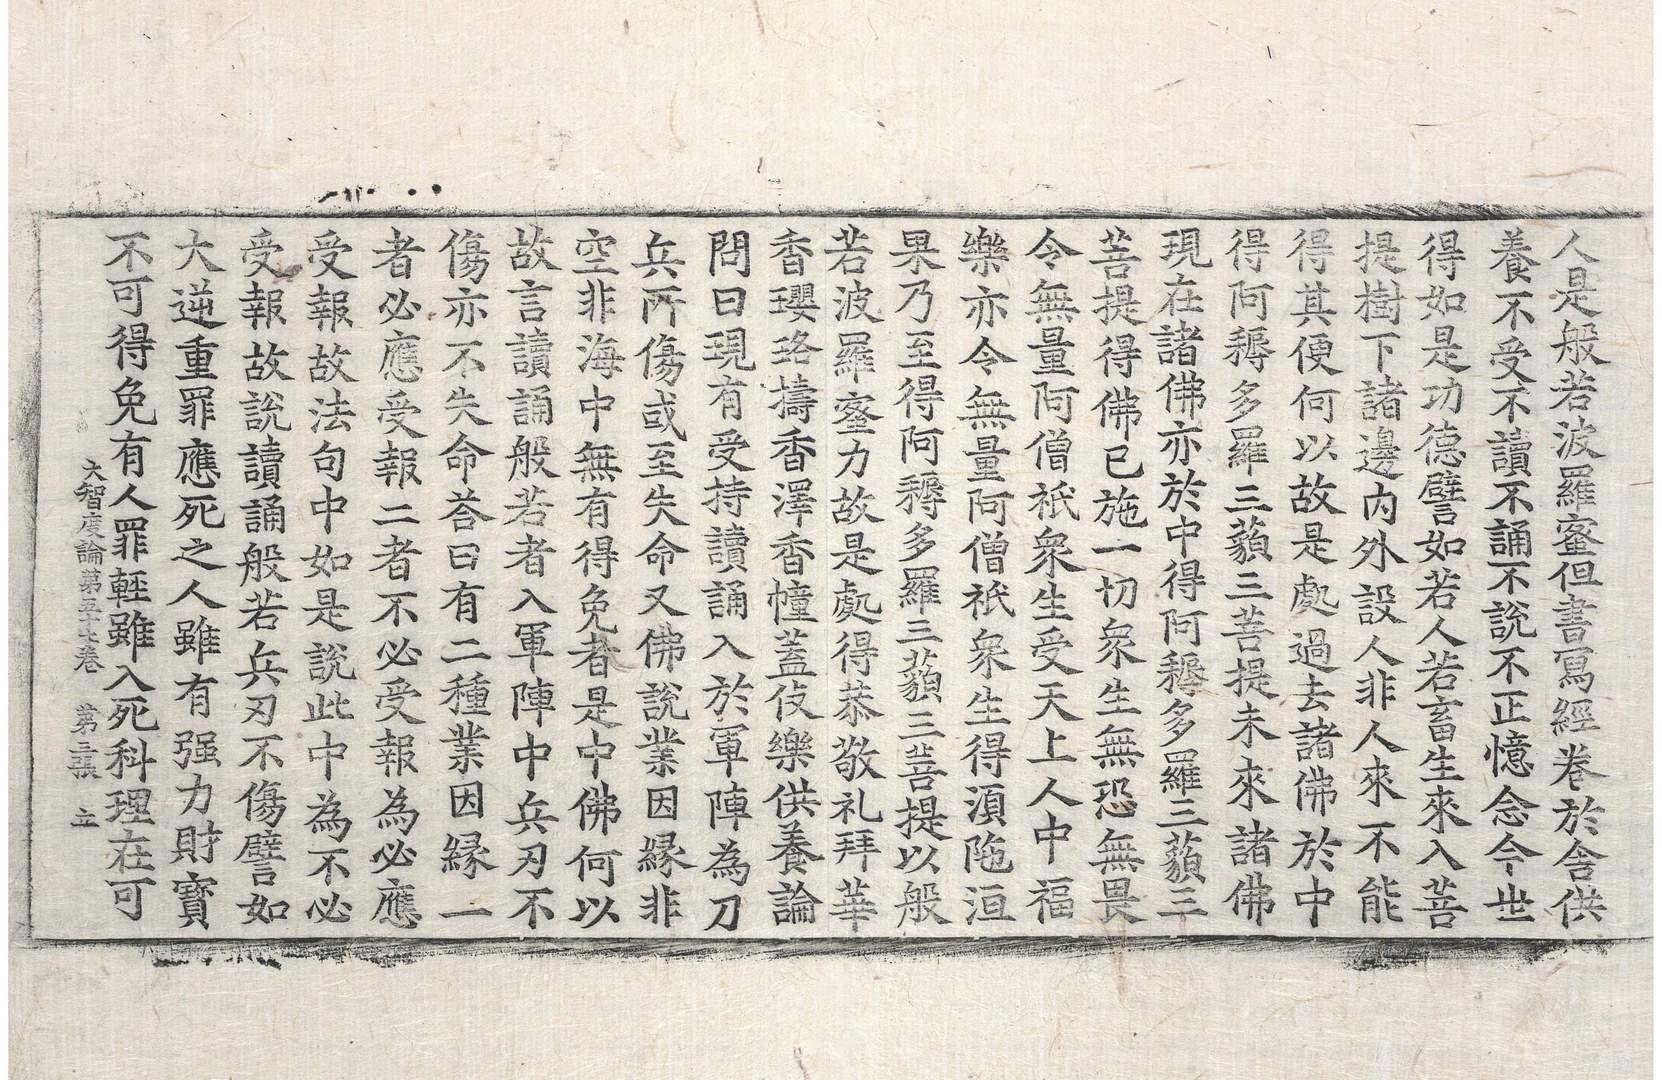 人是般若波羅蜜但書寫經卷於舍供
養不受不讀不誦不說不正憶念今世
得如是功德譬如若人若畜生來入菩
提樹下諸邊內外設人非人來不能
得其便何以故是處過去諸佛於中
得阿耨多羅三藐三菩提未來諸佛
現在諸佛亦於中得阿耨多羅三藐三
菩提得佛已施一切衆生無恐無畏
令無量阿僧祇衆生受天上人中福
樂亦令無量阿僧祇衆生得湏陁洹
果乃至得阿耨多羅三藐三菩提以般
若波羅蜜力故是處得恭敬礼拜華
香瓔珞擣香香澤香幢蓋伎樂供養論
問曰現有受持讀誦入於軍陣為刀
兵所傷或至失命又佛說業因緣非
空非海中無有得免者是中佛何以
故言讀誦般若者入軍陣中兵刃不
傷亦不失命荅曰有二種業因緣一
者必應受報二者不必受報為必應
受報故法句中如是說此中為不必
受報故說讀誦般若兵刃不傷譬如
大逆重罪應死之人雖有强力財寶
不可得免有人罪輕雖入死科理在可
大智度論第五十七卷 第三張 立